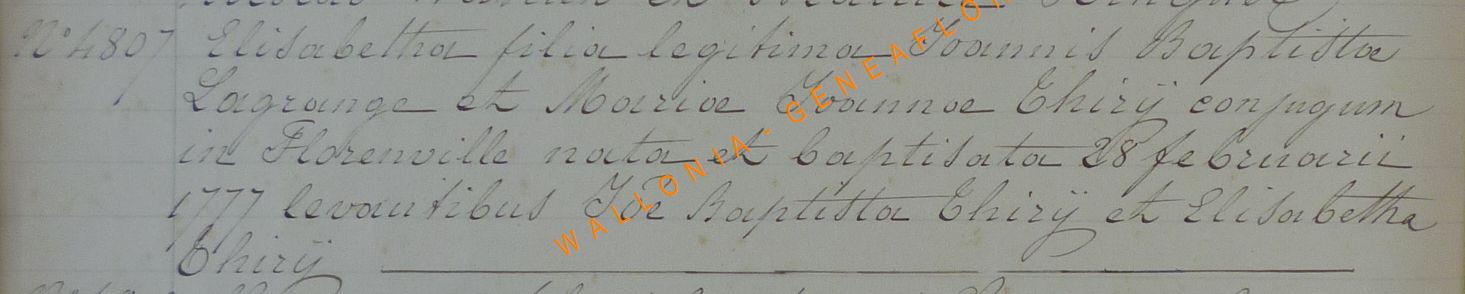 N° 4807 Elisabetha filia legitima Joannis Baptista
Lagrange et Mariae Joannae Thirÿ conjugum
in Florenville nata et baptisata 28 februarii
1777 levantibus Joe Baptista Thirÿ et Elisabetha
Thirÿ
WALLONIA-GENEAFLO